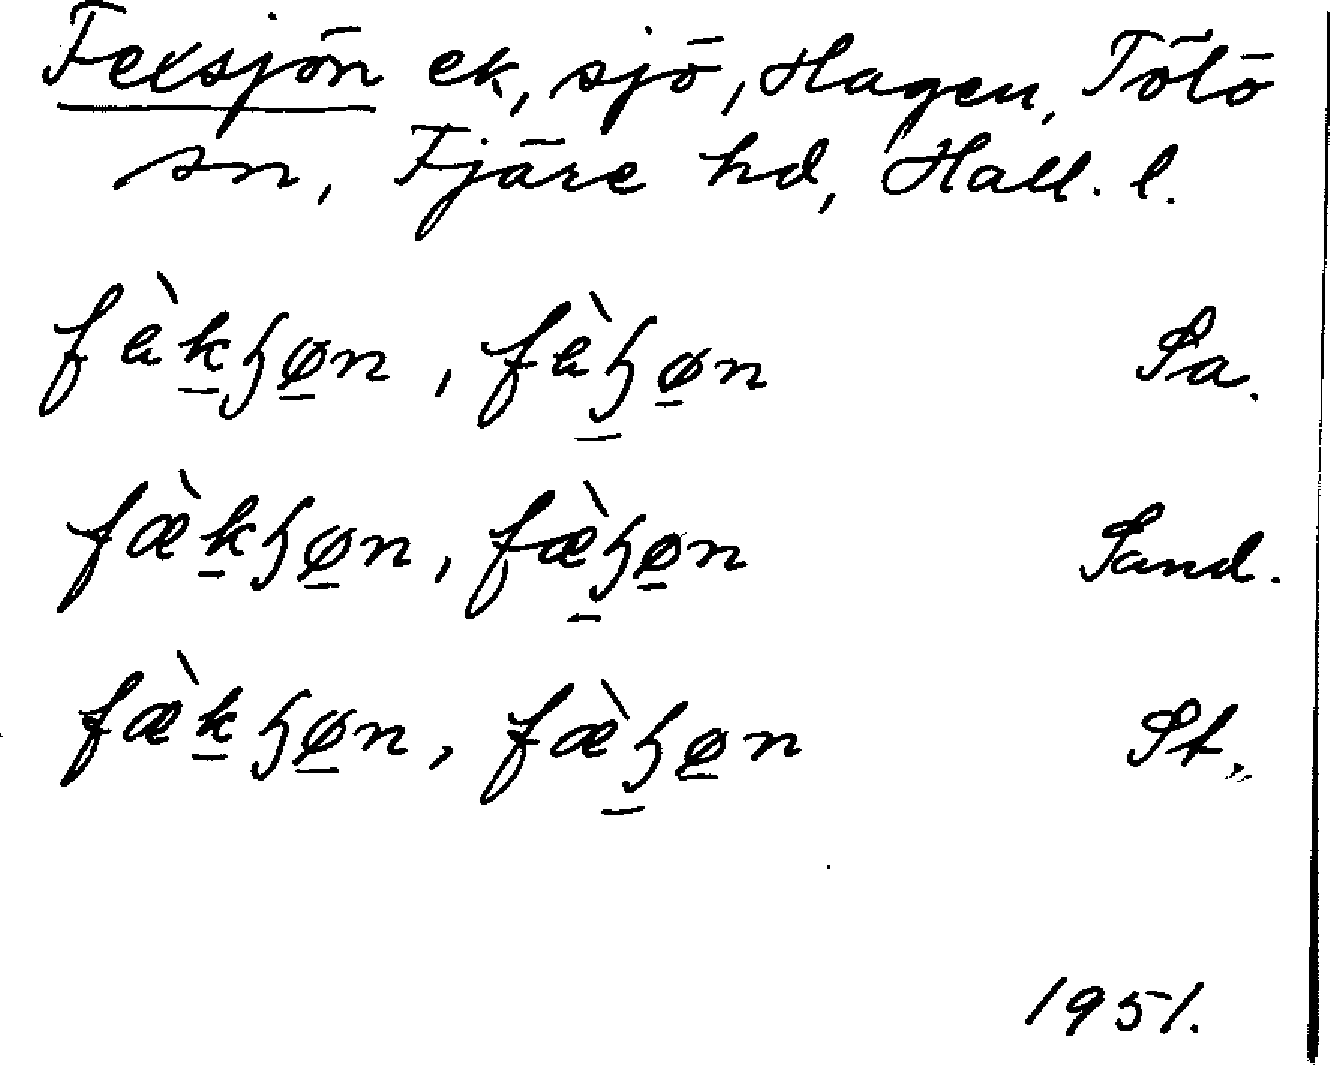 Fexsjön ek, sjö, Hagen, Tölö
sn, Fjäre hd, Hall. l.
fàkɧøn, fàɧøn Sa.
fæ̀kɧøn, fæ̀ɧøn Sand.
fæ̀kɧøn, fæ̀ɧøn St.
1951.